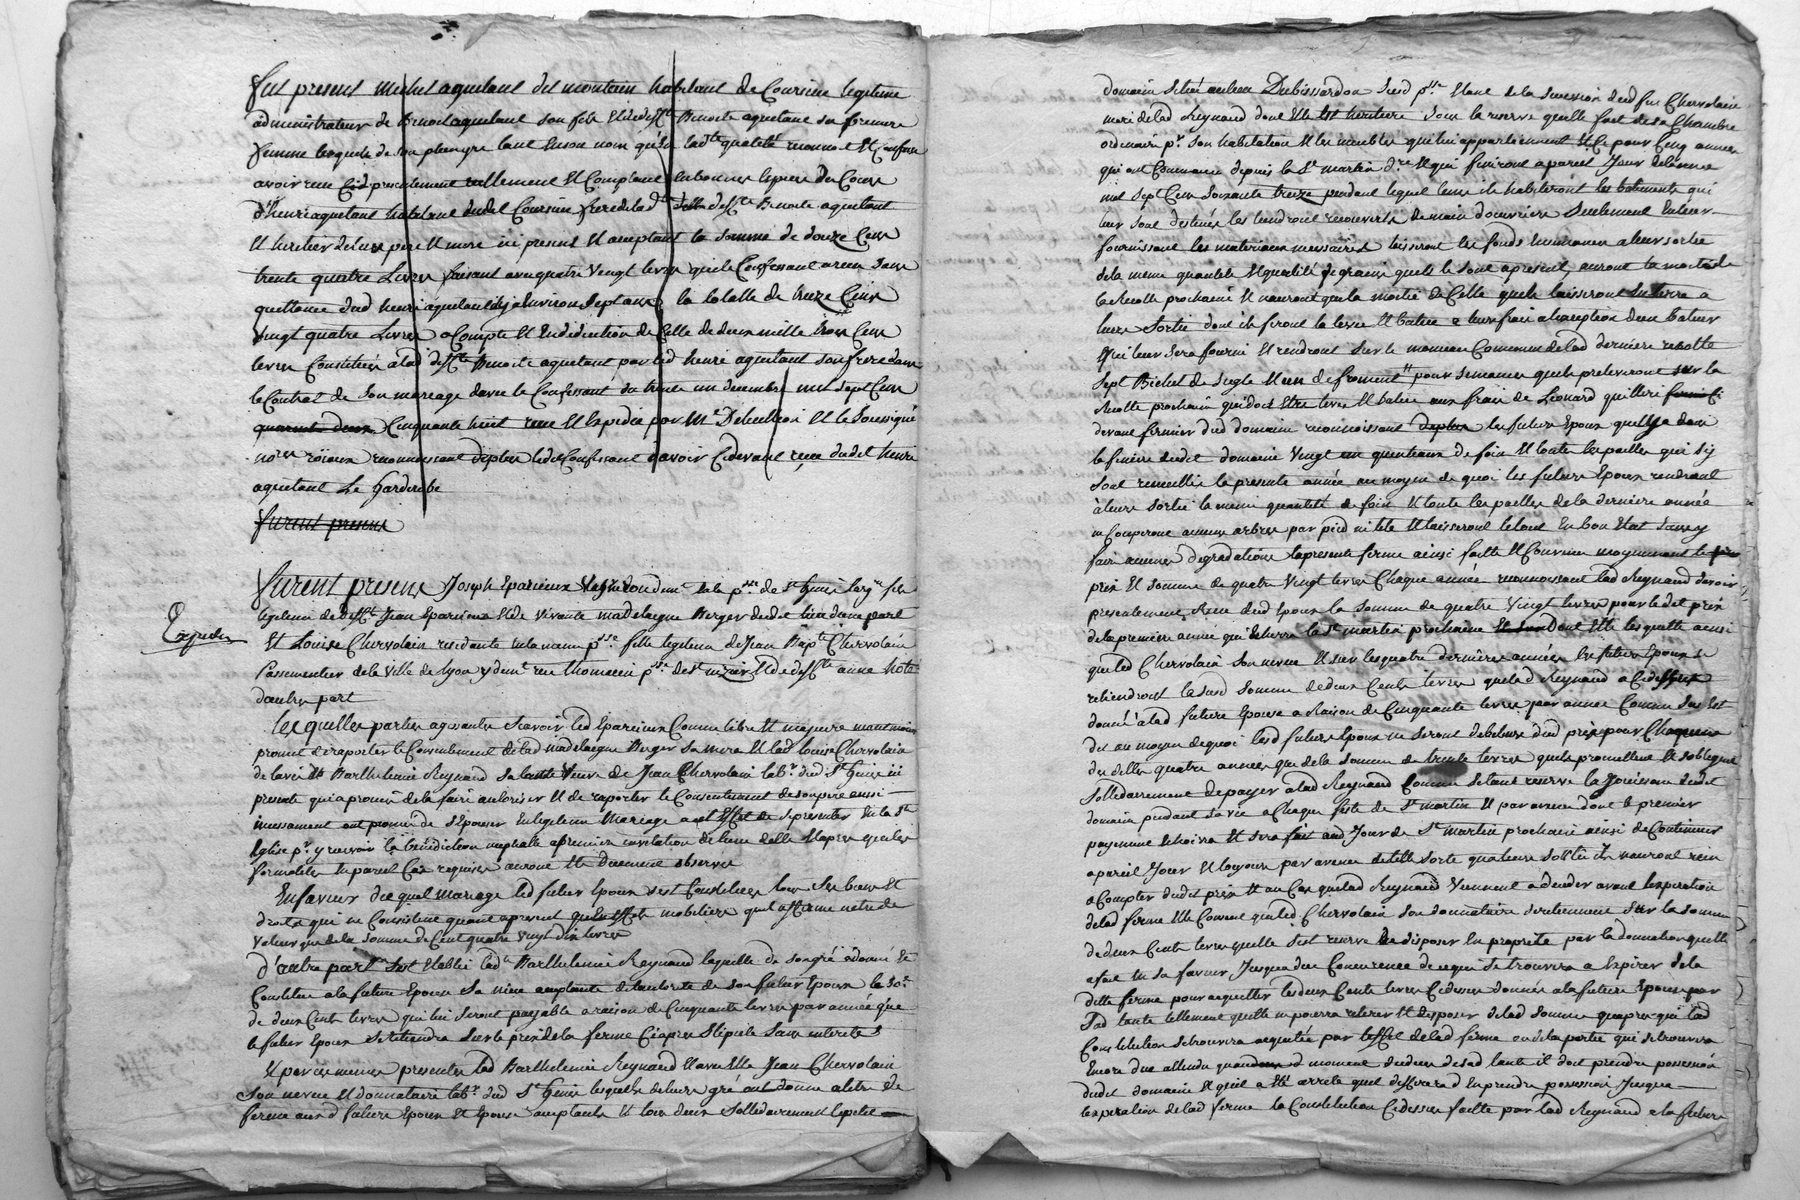 fut present michel aquetant del montain habitant de Coursieu legitime
administrateur de Benoit aquetant son fils et de deffte Benoite aquetant sa premiere
femme lequel de son plein gre tant en son nom qu'en ladte qualité reconnoit et Confesse
avoir reçu Cid presentement reellement et Comptant en bonnes especes du Cours
d'henri aquetant habitant dudit Coursieu frere de lad deffte Benoite aquetant
et heritier de leurs pere et mere ici present et acceptant la somme de douze Cent
trente quatre Livres faisant avec quatre vingt livres que le Confessant a reçu sans
quittance dud henri aquetant il y a Environ sept ans la totalle de treize Cent
vingt quatre Livres a Compte et En deduction de Celle de deux mille trois Cent
livres Constituée a lad deffte Benoite aquetant par led henri aquetant son frere dans
le Contrat de son mariage davec le Confessant du trente un decembre mil sept Cent
quarante deux Cinquante huit reçu et Expedié par Me et le soussigné
nores roiaux reconnoissant deplus ledit Confessant d'avoir Cidevant reçu dudit henri
aquetant Le Garderobe
furent presens
Expedié
furent presens Joseph Eparcieux vigneron demt en la psse de St Genis largre fils
legitime de defft Jean Eparcieux et de vivante madelaigne Berger dudit lieu dune part
et Louise Chervolain residante en la meme psse fille legitime de Jean Bapte Chervolain
Passementier de la ville de Lyon y demt rue Thomassin psse de St nizier et de deffte anne
dautre part
lesquelles parties agissantes scavoir led Eparcieux Comme libre et majeure neantmoins
promet de raporter le Consentement de lad madelaigne Berger sa mere et lad Louise Chervolain
de lavis de Barthelemie Reynaud sa tante veuve de Jean Chervolain labr dud St Genis ici
presente qui a promis de la faire autoriser et de raporter le Consentement de son pere aussi
incessament ont promis de s'Epouser En legitime Mariage a cet Effet de se presenter En la Ste
Eglise pr y recevoir la benediction nuptiale a premiere invitation de lune delles et apres que les
formalités en pareil Cas requises auront été Duement observées
En faveur du quel mariage led futur Epoux s'est Constitué tous ses biens et
droits qui ne Consistent quant a present qu'En Effets mobiliers qu'il affirme netre de
valeur que de la somme de Cent quatre vingt dix livres
d'autre part s'est Etablie lade Barthelemie Reynaud laquelle de son gré a donné et
Constitué a la future Epouse sa niece acceptante de l'autorité de son futur Epoux la so.e
de deux Cents livres qui lui seront payable a raison de Cinquante livres par année que
le futur Epoux se retiendra sur le prix de la ferme Ciapres Stipulé sans interets
Et par ces memes presentes lad Barthelemie Reynaud et avec elle Jean Chervolain
son neveu et donnataire labr dud St Genis lesquels de leurs gré ont donné a titre de
ferme aux d futurs Epoux et Epouse acceptants et tous deux sollidairement le petit
domaine situé au lieu Dubissardon susd psse Etant de la succession dud feu Chervolain
mari de lad Reynaud dont elle est heritiere sous la reserve quelle fait de sa Chambre
ordinaire pr son habitation et les meubles qui lui appartiennent et Ce pour Cinq années
qui ont Commencé depuis la St martin dre et qui finiront a pareil Jour de lannée
mil sept Cent soixante treize pendant lequel tems ils habiteront les batiments qui
leur sont destinés les tiendront recouverts de main douvriers seulement En leur
fournissant les materiaux necessaires laisseront les fonds Ensemencés a leur sortie
de la meme quantité et qualité de grains quels le sont apresent, auront la moitié de
la Recolte prochaine et n'auront que la moitié de Celle quels laisseront En terre a
leurs sortie dont ils feront la levée et batire a leurs frais a lexception d'un bateur
qui leur sera fourni et rendront sur le monceau Commun de lad derniere recolte
sept Bichet de seigle et un de froment pour semences quels preleveront sur la
Recolte prochaine qui doit Etre levée et batue aux frais de Leonard quilleri
devant fermier dud domaine reconnoissant deplus les futurs Epoux quelly a dans
la feniere dudit domaine vingt quinteaux de foin et toutes les pailles qui s'y
sont recueillies la presente année au moyen de quoi les futurs Epoux rendront
à leurs sortie la meme quantité de foin et toutes les pailles de la derniere année
ne Couperont aucuns arbres par pied ni tete et laisseront le tout En bon Etat sans y
faire aucunes dégradations la presente ferme ainsi faitte et Convenue moyennant le
prix et somme de quatre vingt livres Chaque année reconnoissant lad Reynaud davoir
presentement Reçu dud Epoux la somme de quatre vingt livres pour ledit prix
de la premiere année qui Echerra la St martin prochaine dont elle les quitte ainsi
que led Chervolain son neveu et sur les quatre dernieres années les futurs Epoux se
retiendront la susd somme de deux Cents livres que lad Reynaud a Cidessus
donné a lad future Epouse a Raison de Cinquante livres par année Comme sus Est
dit au moyen de quoi lesd futurs Epoux ne seront debiteurs dud prix pour Chacune
desdittes quatre années que de la somme de trente livres quels promettent et s'obligent
sollidairement de payer a lad Reynaud Comme setant reservé la Jouissance dudit
domaine pendant sa vie a Chaque feste de St martin et par avance dont le premier
payement Echoira et sera fait aud Jour de St martin prochaine ainsi de Continuer
a pareil Jour et toujours par avance de telle sorte qua leurs sortie ils nauront rien
a Compter dudit prix et au Cas que lad Reynaud viennent a deceder avant l'expiration
de lad ferme elle Convient que led Chervolain son donnataire se retiennent sur la somme
de deux Cents livres quelle s'est reservé de disposer En proprieté par la donnation quelle
a fait En sa faveur Jusques a due Concurrence de ce qui se trouvera a Expirer de la
ditte ferme pour acquitter les deux Cents livres Cidessus donnés a la future Epouse par
sad tante tellement quelle ne pourra retirer et disposer de lad somme quapres que lad
Constitution se trouvera acquitée par l'effet de lad ferme ou de la portée qui se trouvera
Encore due attendu quau d moment du deces de sad tante il doit prendre possession
dudit domaine et qu'il a Eté arreté quel differera d'En prendre possession Jusqua
l'expiration de lad ferme la Constitution Cidessus faitte par lad Reynaud a la future